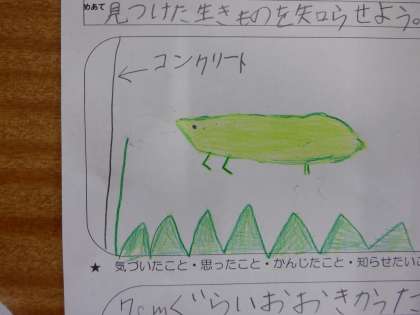 めあて 見つけた生きものを知らせよう。
コンクリート
★ 気づいたこと・思ったこと・かんじたこと・知らせたいこ
7cmぐらいおおきかった